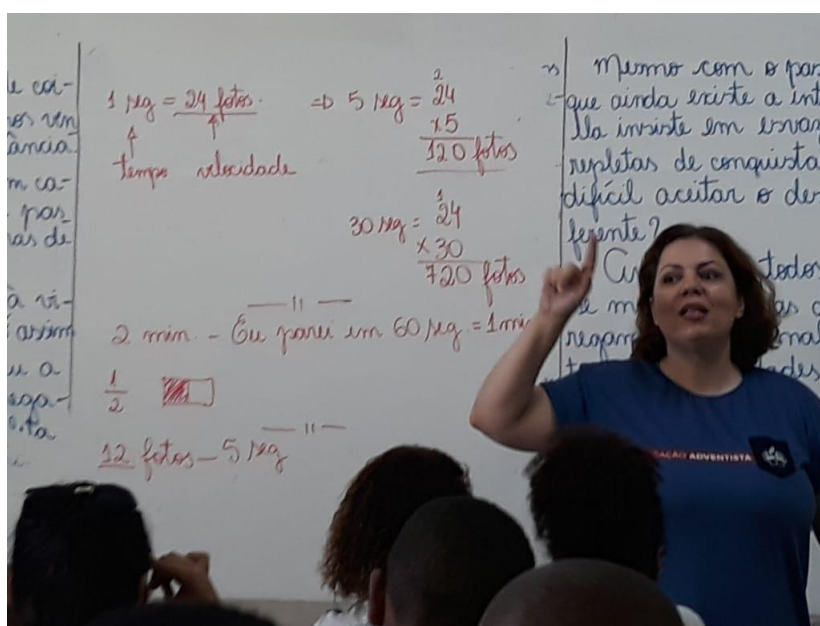 e coi-
os ven
ância.
m ca-
pas
as de
a vi-
assim
u a
ega-
ta
1 seg = 24 fotos.
tempo velocidade
⇒ 5 seg = 24
2
x5
120 fotos
30 seg = 24
1
x 30
720 fotos
— 11 —
2 min. - Eu parei em 60 seg = 1mi
1
2
— 11 —
12 fotos - 5 seg
Mesmo com o pas
que ainda existe a int
lla insiste em
repletas de conquista
difícil aceitar o
ferente?
todos
e m as
regam
des
AÇÃO ADVENTISTA